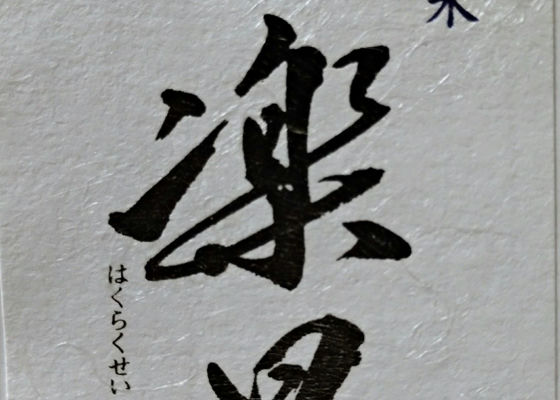 楽
はくらくせい